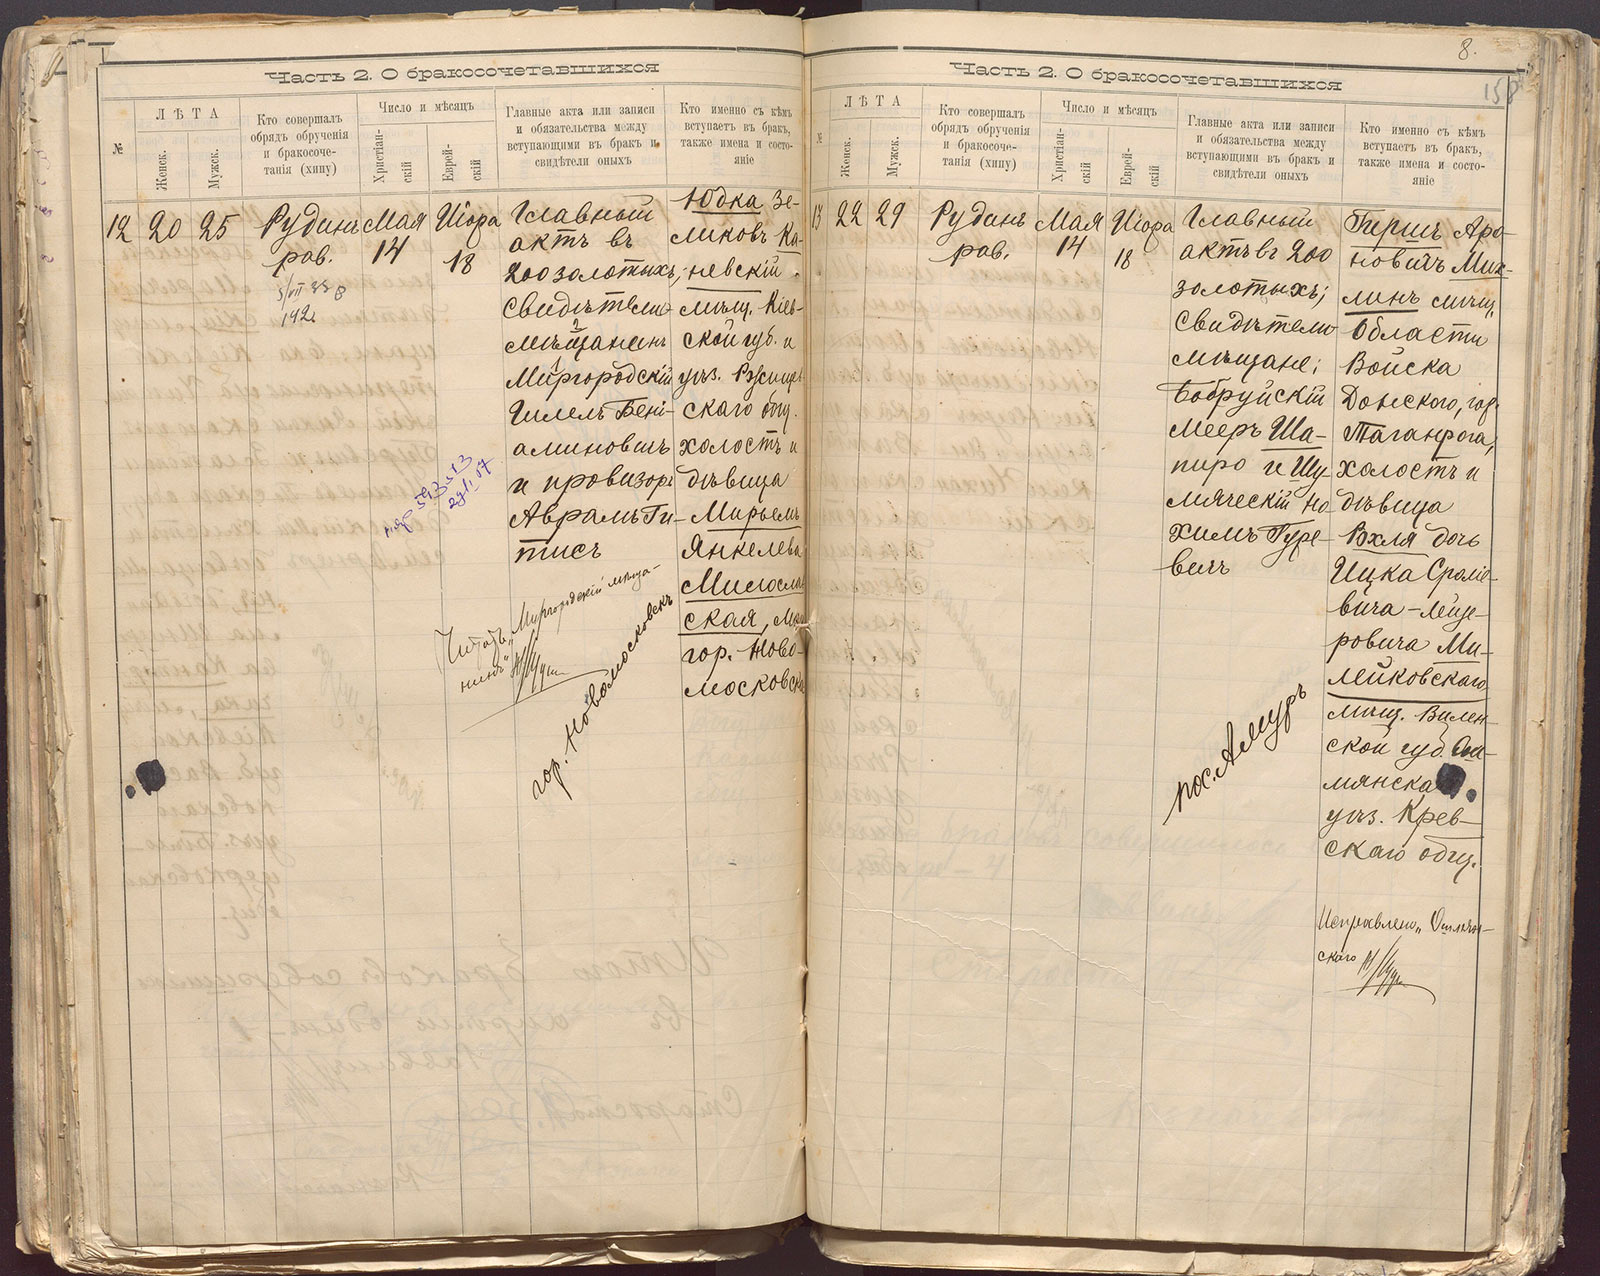 Часть 2. О бракосочетавшихся
№
ЛѢТА
Женск.
Мужск.
Кто совершалъ
обрядъ обрученія
и бракосоче-
танія (хипу)
Число и мѣсяцъ
Христіан-
скій
Еврей-
скій
Главные акта или записи
и обязательства между
вступающими въ бракъ и
свидѣтели оныхъ
Кто именно съ кѣмъ
вступаетъ въ бракъ,
также имена и состо-
яніе
12
20
25
Рудинъ
рав.
Мая
14
Иіора
18
Главный
актъ въ
200 золотыхъ,
свидѣтели
мѣщанинъ
Миргородскій
Шлемъ Бені-
аминовичъ
и провизоръ
Аврамъ Ги-
тисъ
Читать „Миргородскій мѣща-
нинъ“
гор. Новомосковскъ
Юдка Зе-
ликовъ Ка-
невскій
мѣщ. Кіев-
ской губ. и
уѣз. Ржищев
скаго общ.
холостъ и
дѣвица
Мирьемъ
Янкелева
Милослав
ская,
гор. Ново-
московска
8.
158
Часть 2. О бракосочетавшихся
№
ЛѢТА
Женск.
Мужск.
Кто совершалъ
обрядъ обрученія
и бракосоче-
танія (хипу)
Число и мѣсяцъ
Христіан-
скій
Еврей-
скій
Главные акта или записи
и обязательства между
вступающими въ бракъ и
свидѣтели оныхъ
Кто именно съ кѣмъ
вступаетъ въ бракъ,
также имена и состо-
яніе
13
22
29
Рудинъ
рав.
Мая
14
Иіора
18
Главный
актъ въ 200
золотыхъ;
свидѣтели
мѣщане;
Бобруйскій
Мееръ Ша-
пиро и Шу-
мяческій Но
химъ Гуре-
вичъ
пос. Амуръ
Гершъ Аро-
новичъ Мил-
линъ мѣщ.
Области
Войска
Донского, гор.
Таганрога,
холостъ и
дѣвица
Вхля дочь
Ицка Сроліо-
вича-Лейзе-
ровича Ми-
лейковскаго
мѣщ. Вилен-
ской губ. Ош-
мянска
уѣз. Крев-
скаго общ.
Исправлено „Ошмян-
скаго